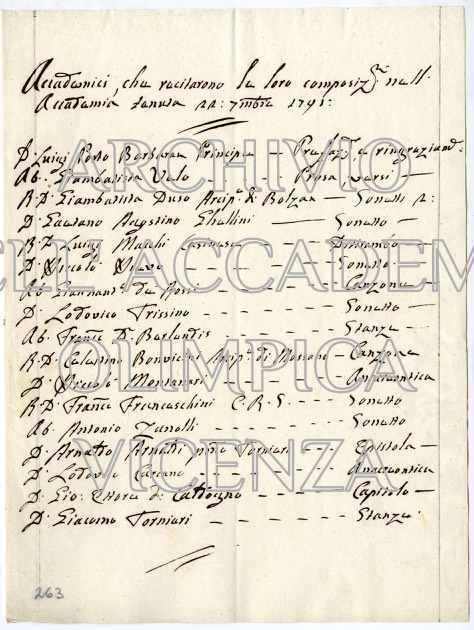 Accademici, che recitarono le loro composiz.ni nell'
Accademia tenuta 22: 7mbre 1791:
D. Luigi Porto Barbaran Principe — Prefaz.e, e ringraziam.
Ab. Giambatista Velo — — — Prosa, e versi —
R. D. Giambatista Duso Arcip.e di Bolzan — Sonetti 2:
D. Gaetano Agostino Ghellini — Sonetto —
R. D. Luigi Marchi — — Ditirambo
D. Nicolò — — — Sonetto
Ab. de Rossi — — — Canzone —
D. Lodovico Trissino — — — — Sonetto —
Ab. Franc.o D.r Berlendis — — — Stanze —
R. D. Celestino Bonvicini Arcip.e di — Canzone
D. Nicolò Montanari — — — Anacreontica
R. D. Franc.o Franceschini C. R. S. — — Sonetto
Ab. Antonio Zanolli — — — — — Sonetto
D. Arnaldo Arnaldi Tornieri — — Epistola —
D. Lodovico — — — — Anacreontica
D. Gio: di — — — Capitolo —
D. Giacomo Tornieri — — — — — — Stanze
263
ARCHIVIO
ACCADEM
OLIMPICA
VICENZA